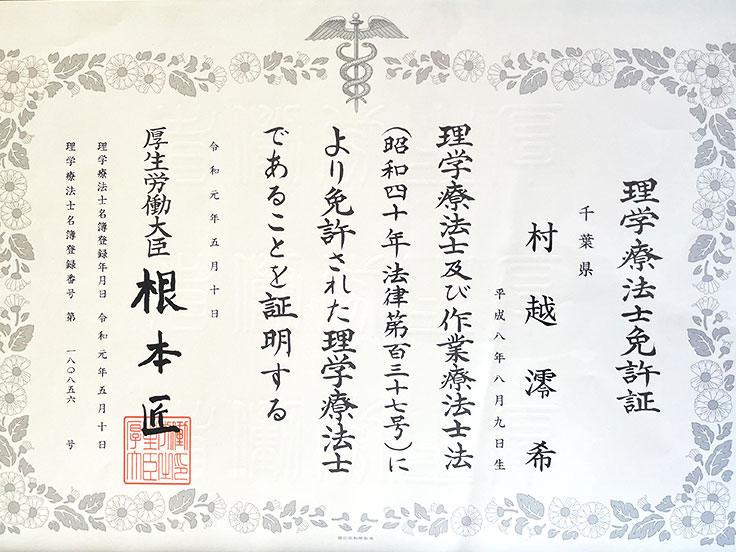 理学療法士免許証
千葉県
村越澪希
平成八年八月九日生
理学療法士及び作業療法士法
(昭和四十年法律第百三十七号)に
より免許された理学療法士
であることを証明する
令和元年五月十日
厚生労働大臣 根本匠
理学療法士名簿登録年月日 令和元年五月十日
理学療法士名簿登録番号 第 一八〇八五六 号